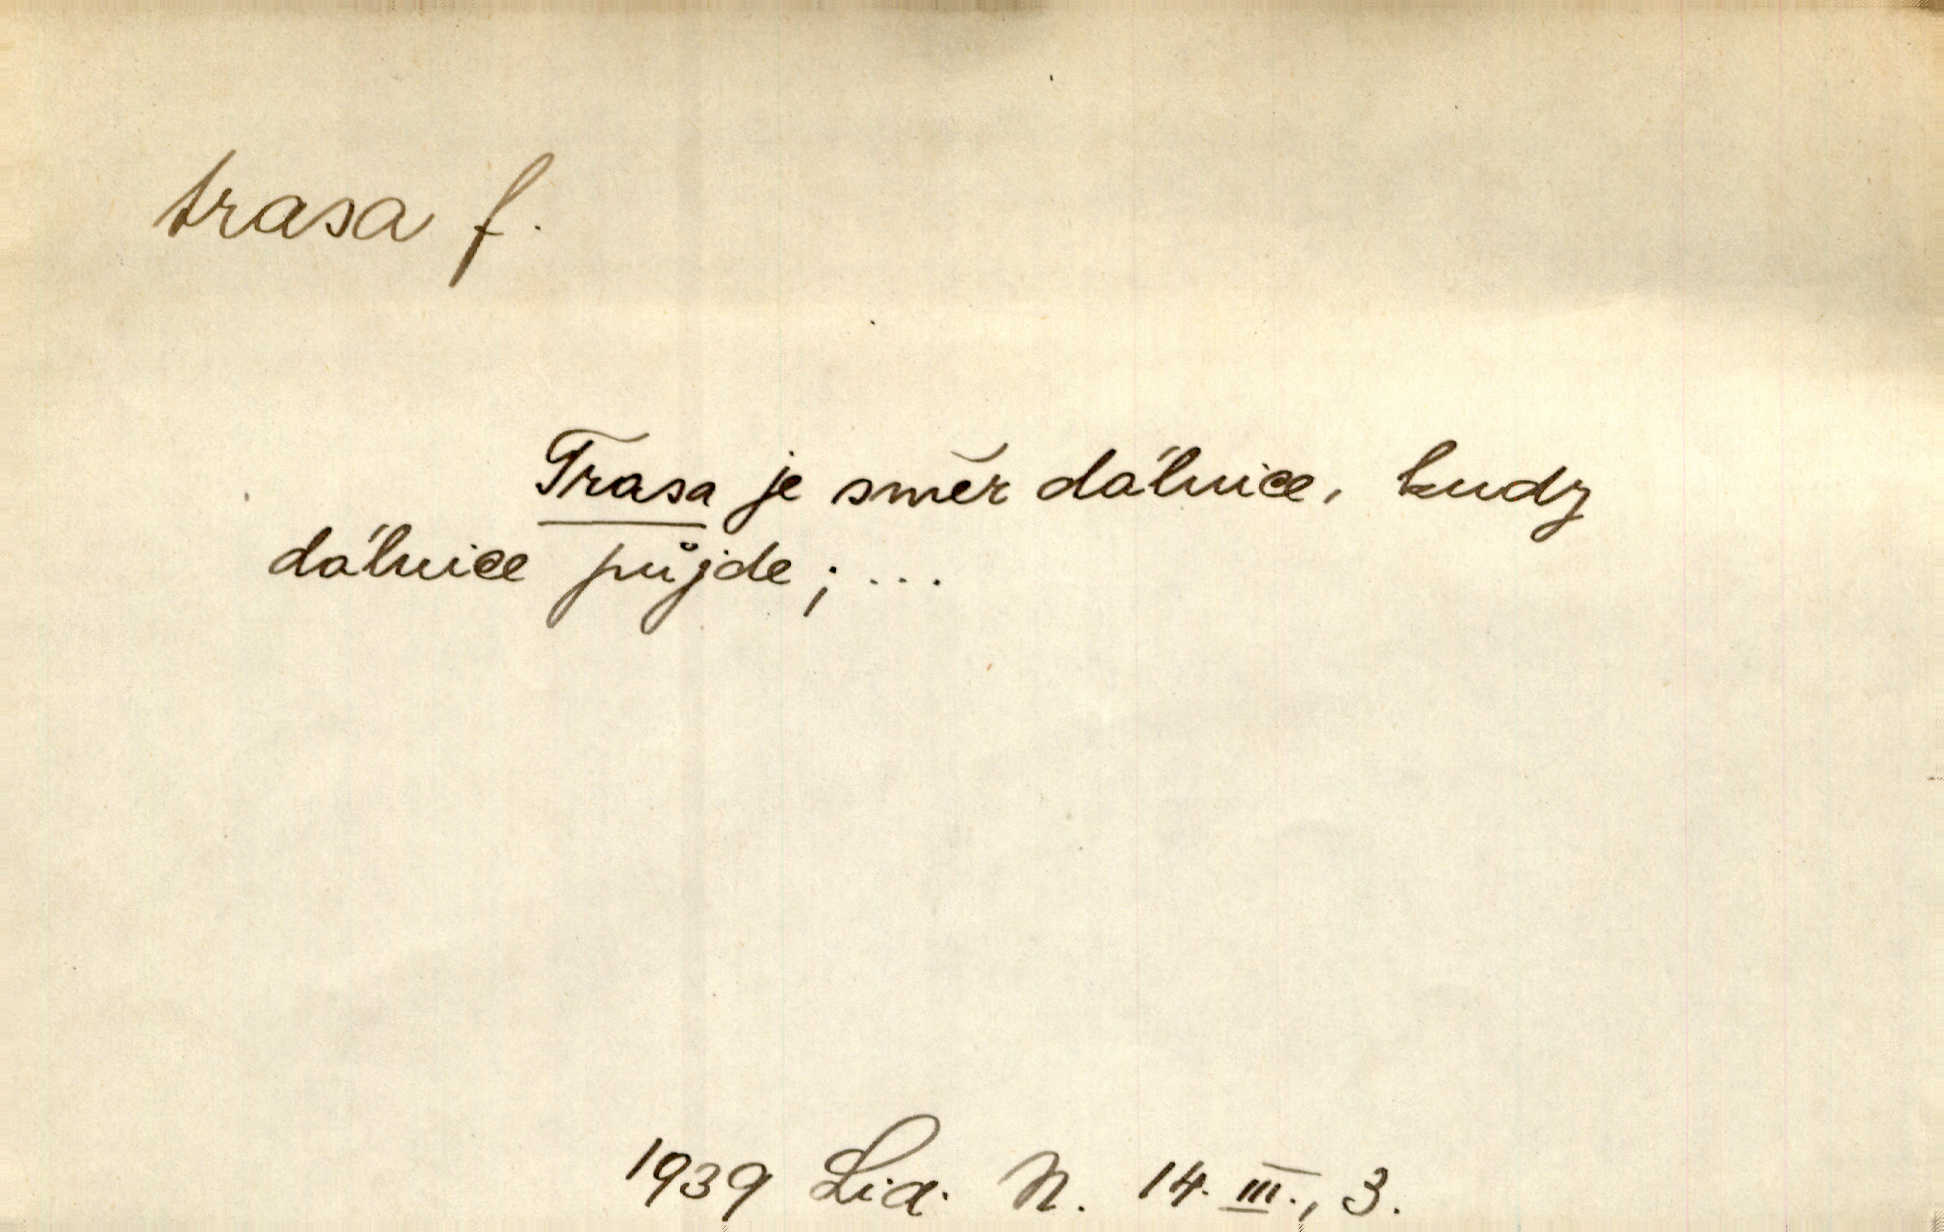 trasa f.
Trasa je směr dálnice, kudy
dálnice půjde; ...
1939 Lid. N. 14. III., 3.